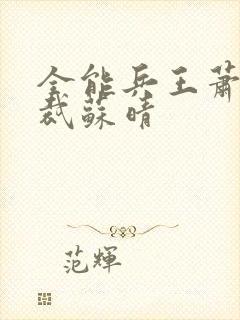 全能兵王萧
裁蘇晴
范輝